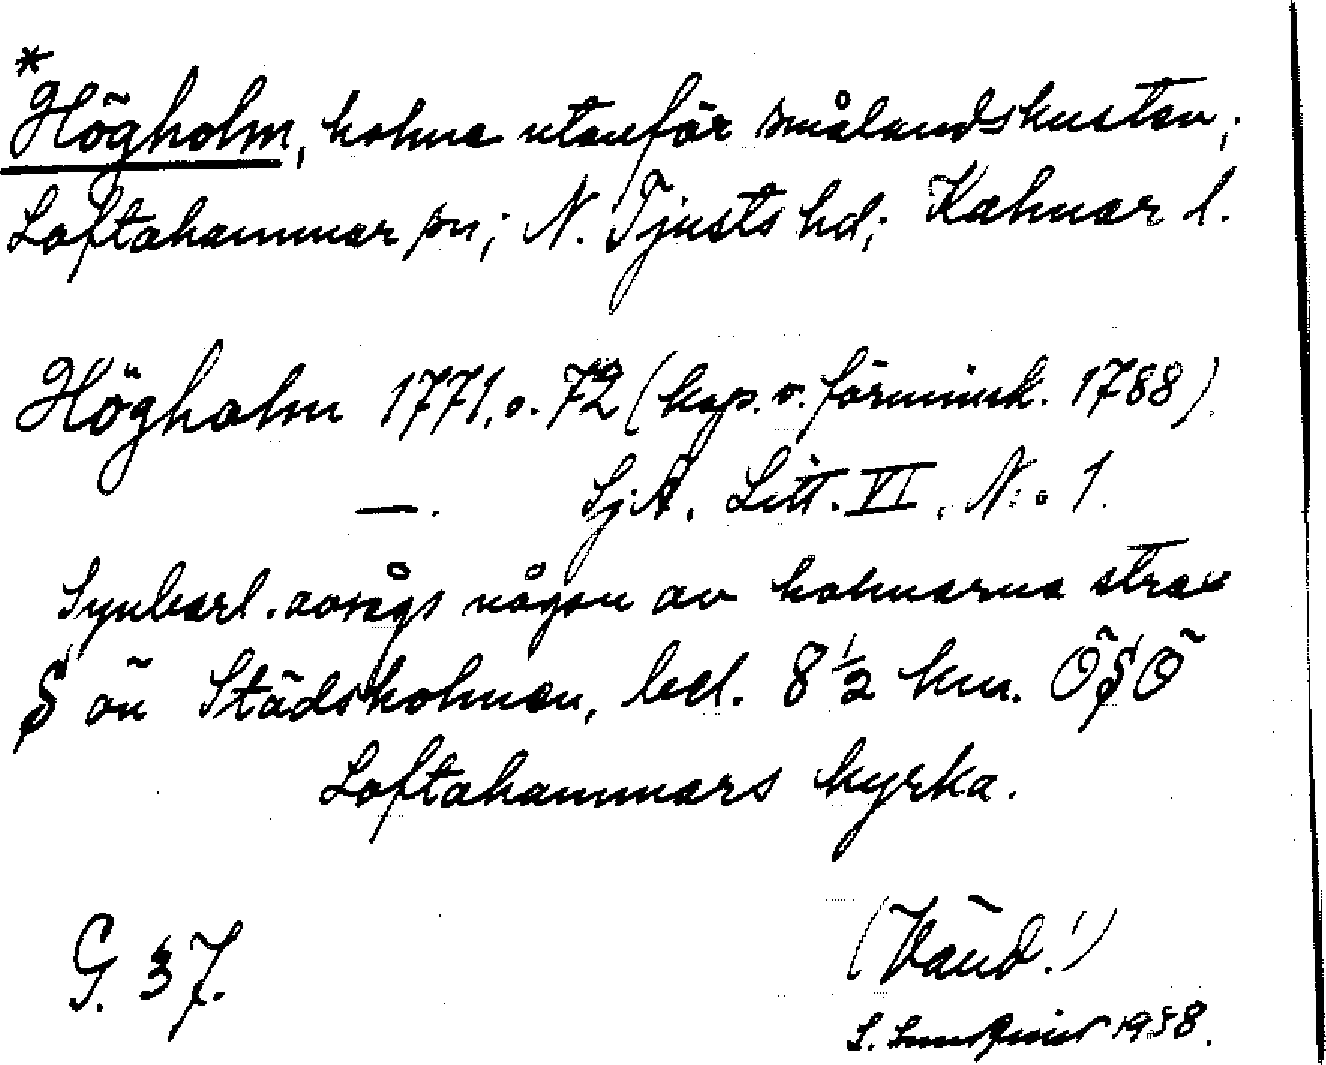 *
Högholm, holme utanför smålandskusten;
Loftahammar sn; N. Tjusts hd; Kalmar l.
Högholm 1771. o. 72 (kop. o. förminsk. 1788)
—. Sj.A. Litt. VI. N:o 1.
Synbarl. avsågs någon av holmarna strax
S ön Städsholmen, bel. 8 1/2 km. ÖSÖ
Loftahammars kyrka.
G. 37.
(Vänd!)
1938.